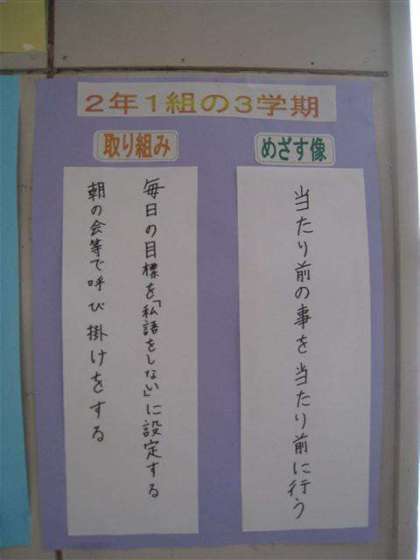 2年1組の3学期
めざす像
当たり前の事を当たり前に行う
取り組み
毎日の目標を「私語をしない」に設定する
朝の会等で呼び掛けをする